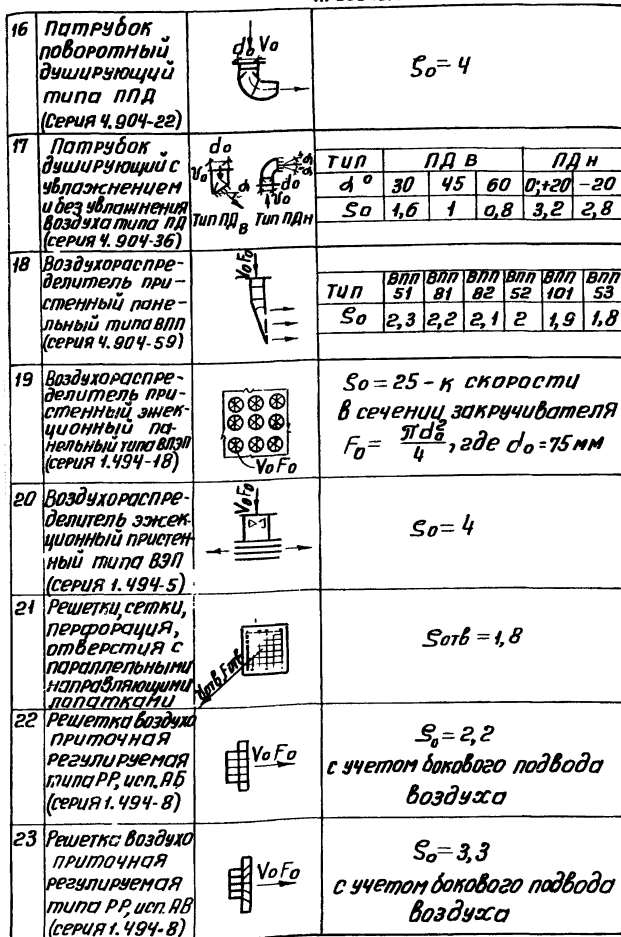 16 Патрубок
поворотный
душирующий
типа ППД
(серия 4.904-22)
d₀ V₀
ζ₀ = 4
17 Патрубок
душирующий с
увлажнением
и без увлажнения
воздуха типа ПД
(серия 4.904-36)
d₀
V₀ α d₀ α
V₀
Тип ПДв Тип ПДн
тип ПДв ПДн
α° 30 45 60 0;+20 -20
ζ₀ 1,6 1 0,8 3,2 2,8
18 Воздухораспре-
делитель при-
стенный пане-
льный типа ВПП
(серия 4.904-59)
V₀F₀
Тип ВПП 51 ВПП 81 ВПП 82 ВПП 52 ВПП 101 ВПП 53
ζ₀ 2,3 2,2 2,1 2 1,9 1,8
19 Воздухораспре-
делитель при-
стенный эжек-
ционный па-
нельный типа ВПЭП
(серия 1.494-18)
V₀F₀
ζ₀ = 25 - к скорости
в сечении закручивателя
F₀ = πd₀²/4, где d₀ = 75 мм
20 Воздухораспре-
делитель эжек-
ционный пристен-
ный типа ВЭП
(серия 1.494-5)
V₀F₀
ζ₀ = 4
21 Решетки, сетки,
перфорация,
отверстия с
параллельными
направляющими
лопатками
Vотв Fотв
ζотв = 1,8
22 Решетка воздухо
приточная
регулируемая
типа РР, исп. АБ
(серия 1.494-8)
V₀F₀
ζ₀ = 2,2
с учетом бокового подвода
воздуха
23 Решетка воздухо
приточная
регулируемая
типа РР, исп. АВ
(серия 1.494-8)
V₀F₀
ζ₀ = 3,3
с учетом бокового подвода
воздуха